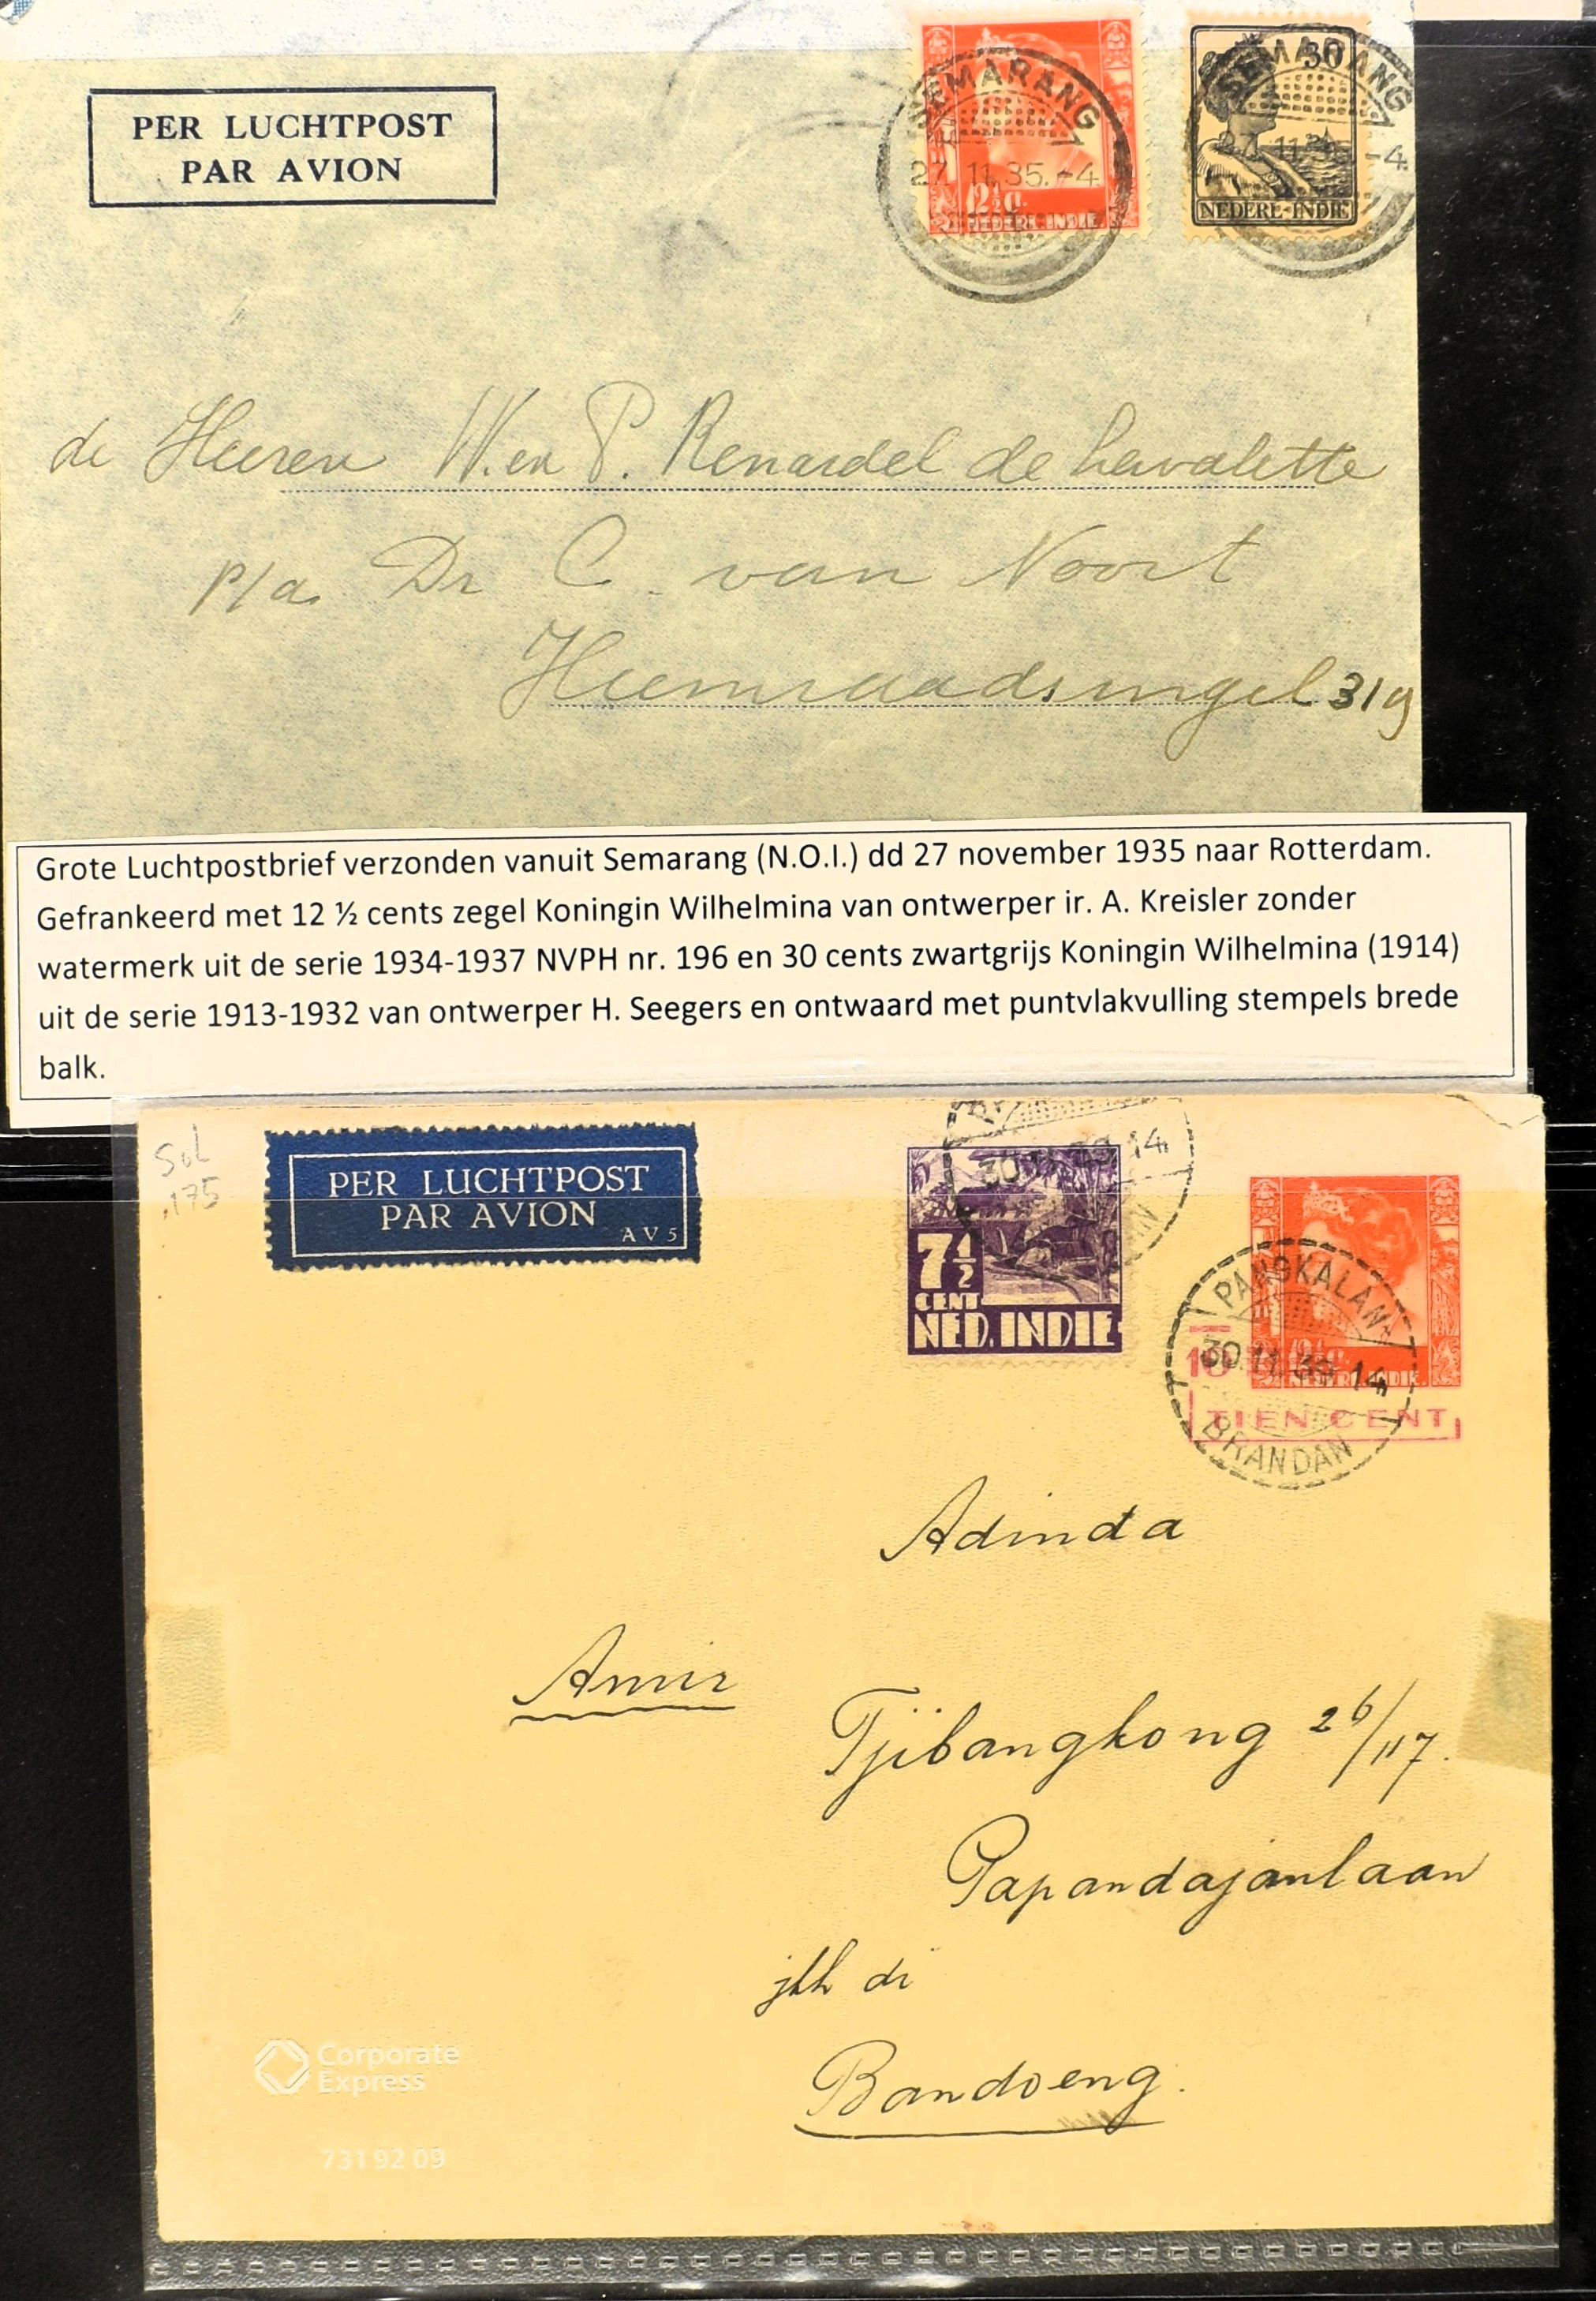 PER LUCHTPOST
PAR AVION
SEMARANG
27.11.35.-4
12½ c.
NEDERL-INDIE
SEMARANG
30
-4.
NEDERL-INDIE
de Heeren W. en P. Renardel de Lavalette
p/a Dr C. van Noort
Heemraadssingel 319
Grote Luchtpostbrief verzonden vanuit Semarang (N.O.I.) dd 27 november 1935 naar Rotterdam.
Gefrankeerd met 12 ½ cents zegel Koningin Wilhelmina van ontwerper ir. A. Kreisler zonder
watermerk uit de serie 1934-1937 NVPH nr. 196 en 30 cents zwartgrijs Koningin Wilhelmina (1914)
uit de serie 1913-1932 van ontwerper H. Seegers en ontwaard met puntvlakvulling stempels brede
balk.
175
PER LUCHTPOST
PAR AVION
AV5
30.11.39.14
7½
CENT
NED. INDIE
PANGKALAN
30.11.39.14
BRANDAN
10
12½ c.
NEDERL-INDIE
TIEN CENT
Adinda
Amir
Tjibangkong 26/117.
Papandajanlaan
di
Bandoeng.
Corporate
Express
731 92 09